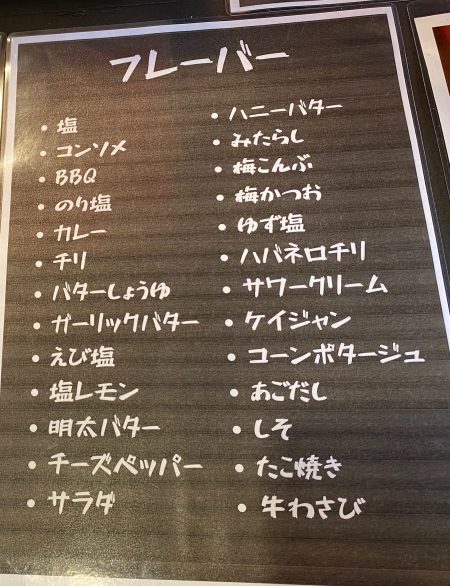 フレーバー
・塩
・コンソメ
・BBQ
・のり塩
・カレー
・チリ
・バターしょうゆ
・ガーリックバター
・えび塩
・塩レモン
・明太バター
・チーズペッパー
・サラダ
・ハニーバター
・みたらし
・梅こんぶ
・梅かつお
・ゆず塩
・ハバネロチリ
・サワークリーム
・ケイジャン
・コーンポタージュ
・あごだし
・しそ
・たこ焼き
・牛わさび